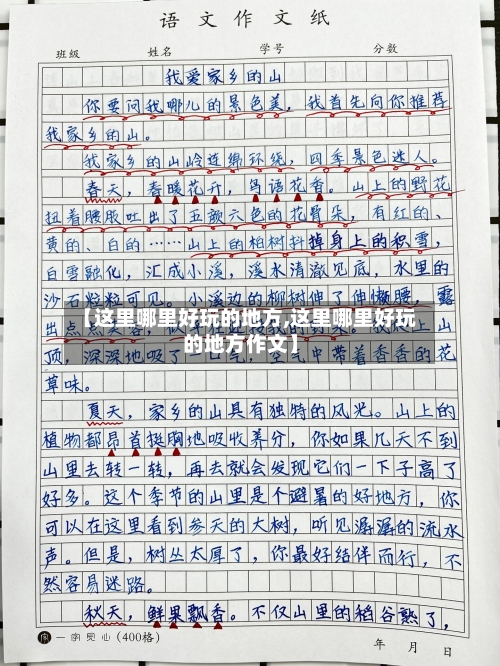 语文作文纸
班级 姓名 学号 分数
我爱家乡的山
你要问我哪儿的景色美，我首先向你推荐
我家乡的山。
我家乡的山岭连绵环绕，四季景色迷人。
春天，春暖花开，鸟语花香。山上的野花
扭着腰肢吐出了五颜六色的花骨朵，有红的、
黄的、白的……山上的柏树抖掉身上的积雪，
白雪融化，汇成小溪，溪水清澈见底，水里的
沙石粒粒可见。小溪边的柳树伸了伸懒腰，露
出点点
【这里哪里好玩的地方,这里哪里好玩
的地方作文】
顶，深深地吸了一口气，空气中带着香香的花
草味。
夏天，家乡的山具有独特的风光。山上的
植物都昂首挺胸地吸收养分，你如果几天不到
山里去转一转，再去就会发现它们一下子高了
好多。这个季节的山里是个避暑的好地方，你
可以在这里看到参天的大树，听见潺潺的流水
声。但是，树丛太厚了，你最好结伴而行，不
然容易迷路。
秋天，鲜果飘香。不仅山里的稻谷熟了，
一朵见心(400格) 年 月 日